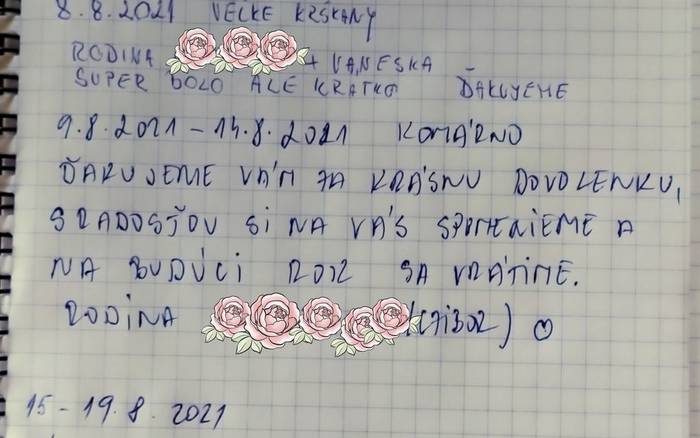 8.8.2021 VEĽKE KRŠKANY
RODINA + VANESKA
SUPER BOLO ALE KRATKO ĎAKUJEME
9.8.2021 - 14.8.2021 KOMÁRNO
ĎAKUJEME VÁM ZA KRÁSNU DOVOLENKU,
S RADOSŤOU SI NA VÁS SPOMENIEME A
NA BUDÚCI ROK SA VRÁTIME.
RODINA (CTIBOR)
15 - 19.8.2021